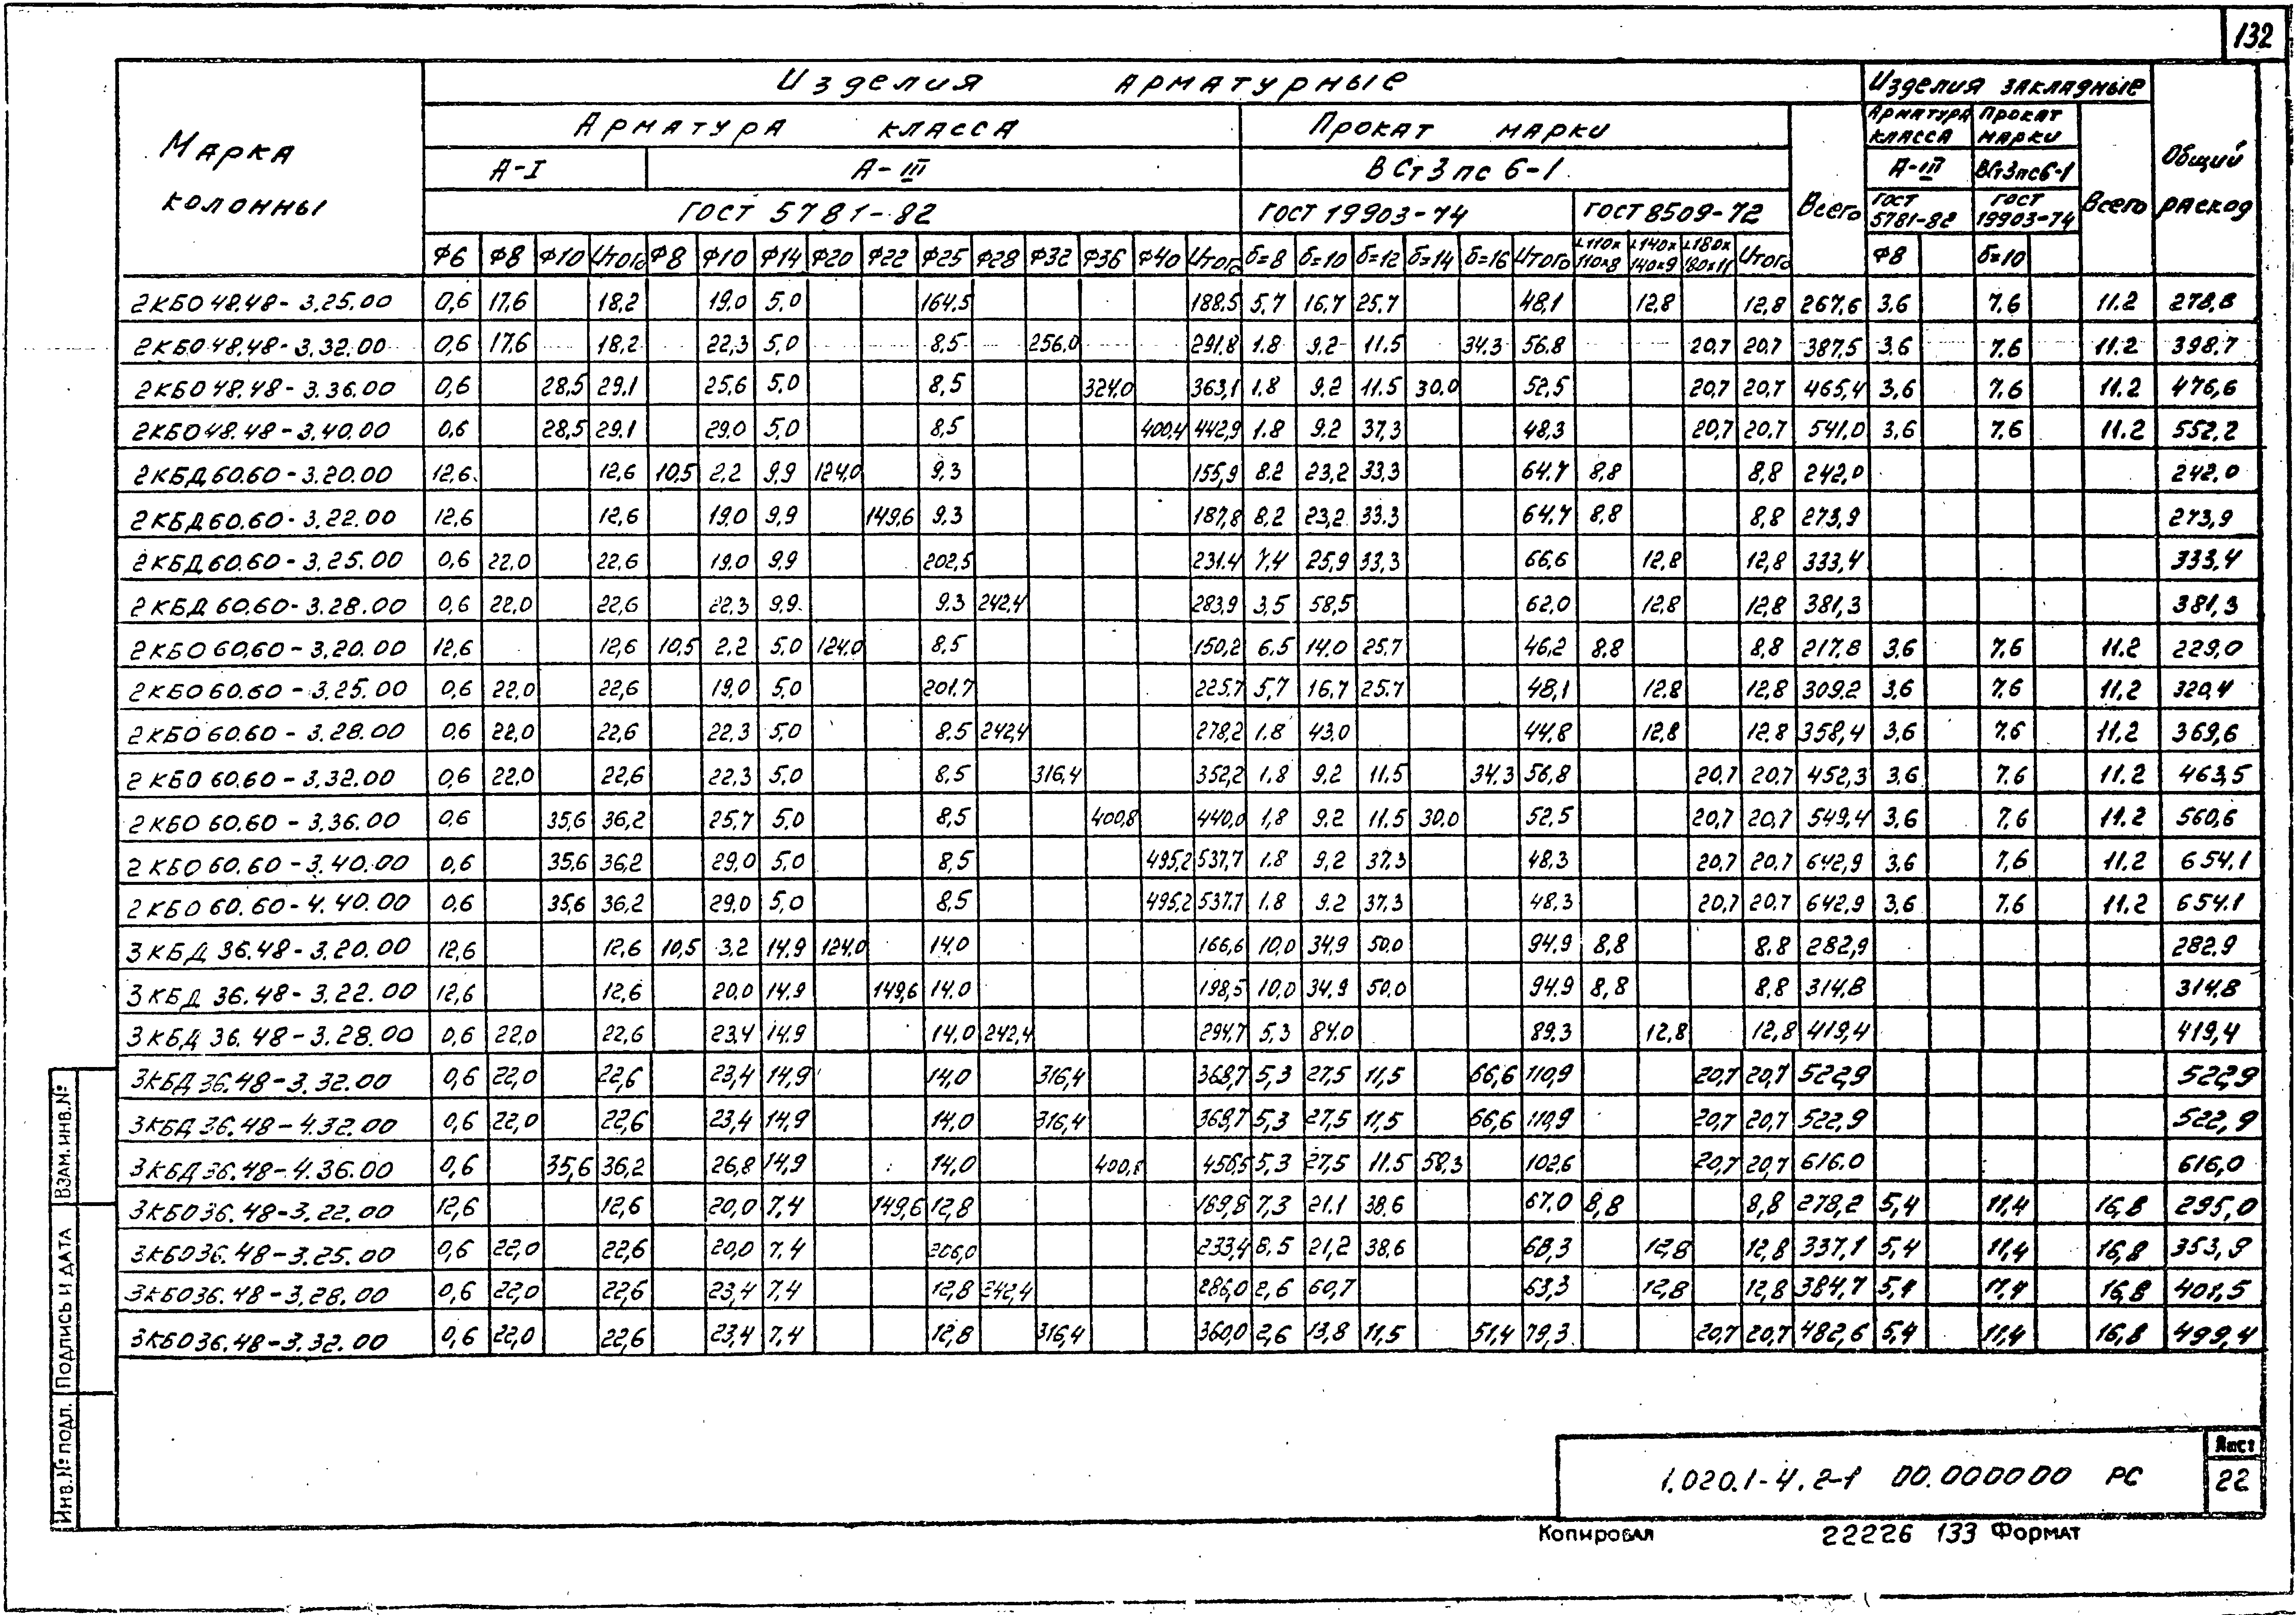 132
Изделия арматурные
Изделия закладные
Марка колонны
Арматура класса
Прокат марки
Всего
Арматура класса
Прокат марки
Всего
Общий расход
А-I
А-III
ВСт3пс6-1
А-III
ВСт3пс6-1
ГОСТ 5781-82
ГОСТ 19903-74
ГОСТ 8509-72
ГОСТ 5781-82
ГОСТ 19903-74
Ф6 Ф8 Ф10 Итого Ф8 Ф10 Ф14 Ф20 Ф22 Ф25 Ф28 Ф32 Ф36 Ф40 Итого б=8 б=10 б=12 б=14 б=16 Итого L110х110х8 L140х140х9 L180х180х11 Итого Ф8 б=10
2КБО 48.48-3.25.00 0,6 17,6 18,2 19,0 5,0 164,5 188,5 5,7 16,7 25,7 48,1 12,8 12,8 267,6 3,6 7,6 11.2 278,8
2КБО 48.48-3.32.00 0,6 17,6 18,2 22,3 5,0 8,5 256,0 291,8 1.8 9.2 11.5 34.3 56.8 20,7 20,7 387,5 3,6 7,6 11.2 398,7
2КБО 48.48-3.36.00 0,6 28,5 29,1 25,6 5,0 8,5 324,0 363,1 1.8 9.2 11.5 30.0 52,5 20,7 20,7 465,4 3,6 7,6 11.2 476,6
2КБО 48.48-3.40.00 0,6 28,5 29.1 29.0 5,0 8,5 400,4 442,9 1.8 9.2 37,3 48,3 20,7 20,7 541,0 3,6 7,6 11.2 552,2
2КБД 60.60-3.20.00 12,6 12,6 10,5 2,2 9,9 124,0 9,3 155,9 8.2 23,2 33,3 64,7 8,8 8,8 242,0 242,0
2КБД 60.60-3.22.00 12,6 12,6 19,0 9,9 149,6 9,3 187,8 8,2 23,2 33.3 64,7 8,8 8,8 273,9 273,9
2КБД 60.60-3.25.00 0,6 22,0 22,6 19,0 9,9 202,5 231.4 7,4 25,9 33,3 66,6 12,8 12,8 333,4 333,4
2КБД 60.60-3.28.00 0,6 22,0 22,6 22,3 9,9 9,3 242,4 283,9 3,5 58,5 62,0 12,8 12,8 381,3 381,3
2КБО 60.60-3.20.00 12,6 12,6 10,5 2,2 5,0 124,0 8,5 150,2 6,5 14,0 25,7 46,2 8,8 8,8 217,8 3,6 7,6 11.2 229,0
2КБО 60.60-3.25.00 0,6 22,0 22,6 19,0 5,0 201,7 225,7 5,7 16,7 25,7 48,1 12,8 12,8 309,2 3,6 7,6 11,2 320,4
2КБО 60.60-3.28.00 0,6 22,0 22,6 22,3 5,0 8,5 242,4 278,2 1.8 43,0 44,8 12,8 12,8 358,4 3,6 7,6 11.2 369,6
2КБО 60.60-3.32.00 0,6 22,0 22,6 22,3 5,0 8,5 316,4 352,2 1,8 9,2 11.5 34.3 56,8 20,7 20,7 452,3 3,6 7,6 11.2 463,5
2КБО 60.60-3.36.00 0,6 35,6 36,2 25,7 5,0 8,5 400,8 440,0 1,8 9,2 11.5 30,0 52,5 20,7 20,7 549,4 3,6 7,6 11.2 560,6
2КБО 60.60-3.40.00 0,6 35,6 36,2 29,0 5,0 8,5 495,2 537,7 1.8 9,2 37,3 48,3 20,7 20,7 642,9 3,6 7,6 11.2 654,1
2КБО 60.60-4.40.00 0,6 35,6 36,2 29,0 5,0 8,5 495,2 537,7 1.8 9.2 37,3 48,3 20,7 20,7 642,9 3,6 7,6 11.2 654.1
3КБД 36.48-3.20.00 12,6 12,6 10,5 3,2 14,9 124,0 14,0 166,6 10,0 34,9 50,0 94,9 8,8 8,8 282,9 282,9
3КБД 36.48-3.22.00 12,6 12,6 20,0 14,9 149,6 14,0 198,5 10,0 34,9 50,0 94,9 8,8 8,8 314,8 314,8
3КБД 36.48-3.28.00 0,6 22,0 22,6 23,4 14,9 14,0 242,4 294,7 5,3 84,0 89,3 12,8 12,8 419,4 419,4
3КБД 36.48-3.32.00 0,6 22,0 22,6 23,4 14,9 14,0 316,4 368,7 5,3 27,5 11,5 66,6 110,9 20,7 20,7 522,9 522,9
3КБД 36.48-4.32.00 0,6 22,0 22,6 23,4 14,9 14,0 316,4 368,7 5,3 27,5 11,5 66,6 110,9 20,7 20,7 522,9 522,9
3КБД 36.48-4.36.00 0,6 35,6 36,2 26,8 14,9 14,0 400,8 456,5 5,3 27,5 11.5 58,3 102,6 20,7 20,7 616,0 616,0
3КБО 36.48-3.22.00 12,6 12,6 20,0 7,4 149,6 12,8 189,8 7,3 21,1 38,6 67,0 8,8 8,8 278,2 5,4 11,4 16,8 295,0
3КБО 36.48-3.25.00 0,6 22,0 22,6 20,0 7,4 206,0 233,4 8,5 21,2 38,6 68,3 12,8 12,8 337,1 5,4 11,4 16,8 353,9
3КБО 36.48-3.28.00 0,6 22,0 22,6 23,4 7,4 12,8 242,4 286,0 2,6 60,7 63,3 12,8 12,8 384,7 5,4 11,4 16,8 401,5
3КБО 36.48-3.32.00 0,6 22,0 22,6 23,4 7,4 12,8 316,4 360,0 2,6 13,8 11,5 51,4 79,3 20,7 20,7 482,6 5,4 11,4 16,8 499,4
Инв.№ подл. Подпись и дата Взам.инв.№
1.020.1-4.2-1 00.000000 РС
Лист
22
Копировал 22226 133 Формат